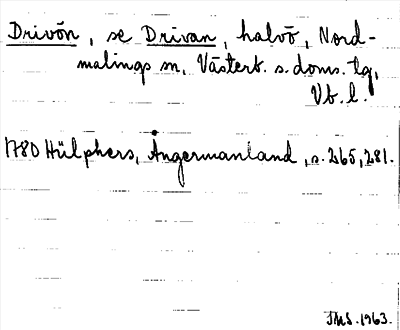 Drivön, se Drivan, halvö, Nord-
malings sn, Västerb. s. doms. tg,
Vb. l.
1780 Hülphers, Ångermanland, s. 265, 281.
JMS. 1963.